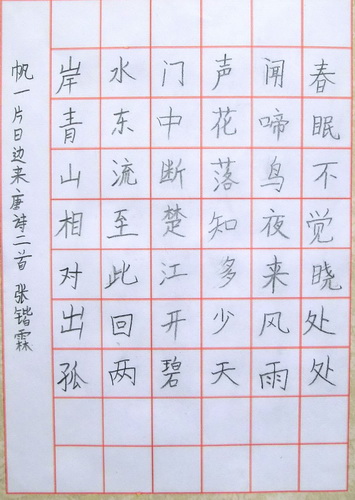 春眠不觉晓处处
闻啼鸟夜来风雨
声花落知多少天
门中断楚江开碧
水东流至此回两
岸青山相对出孤
帆一片日边来唐诗二首 张锴霖